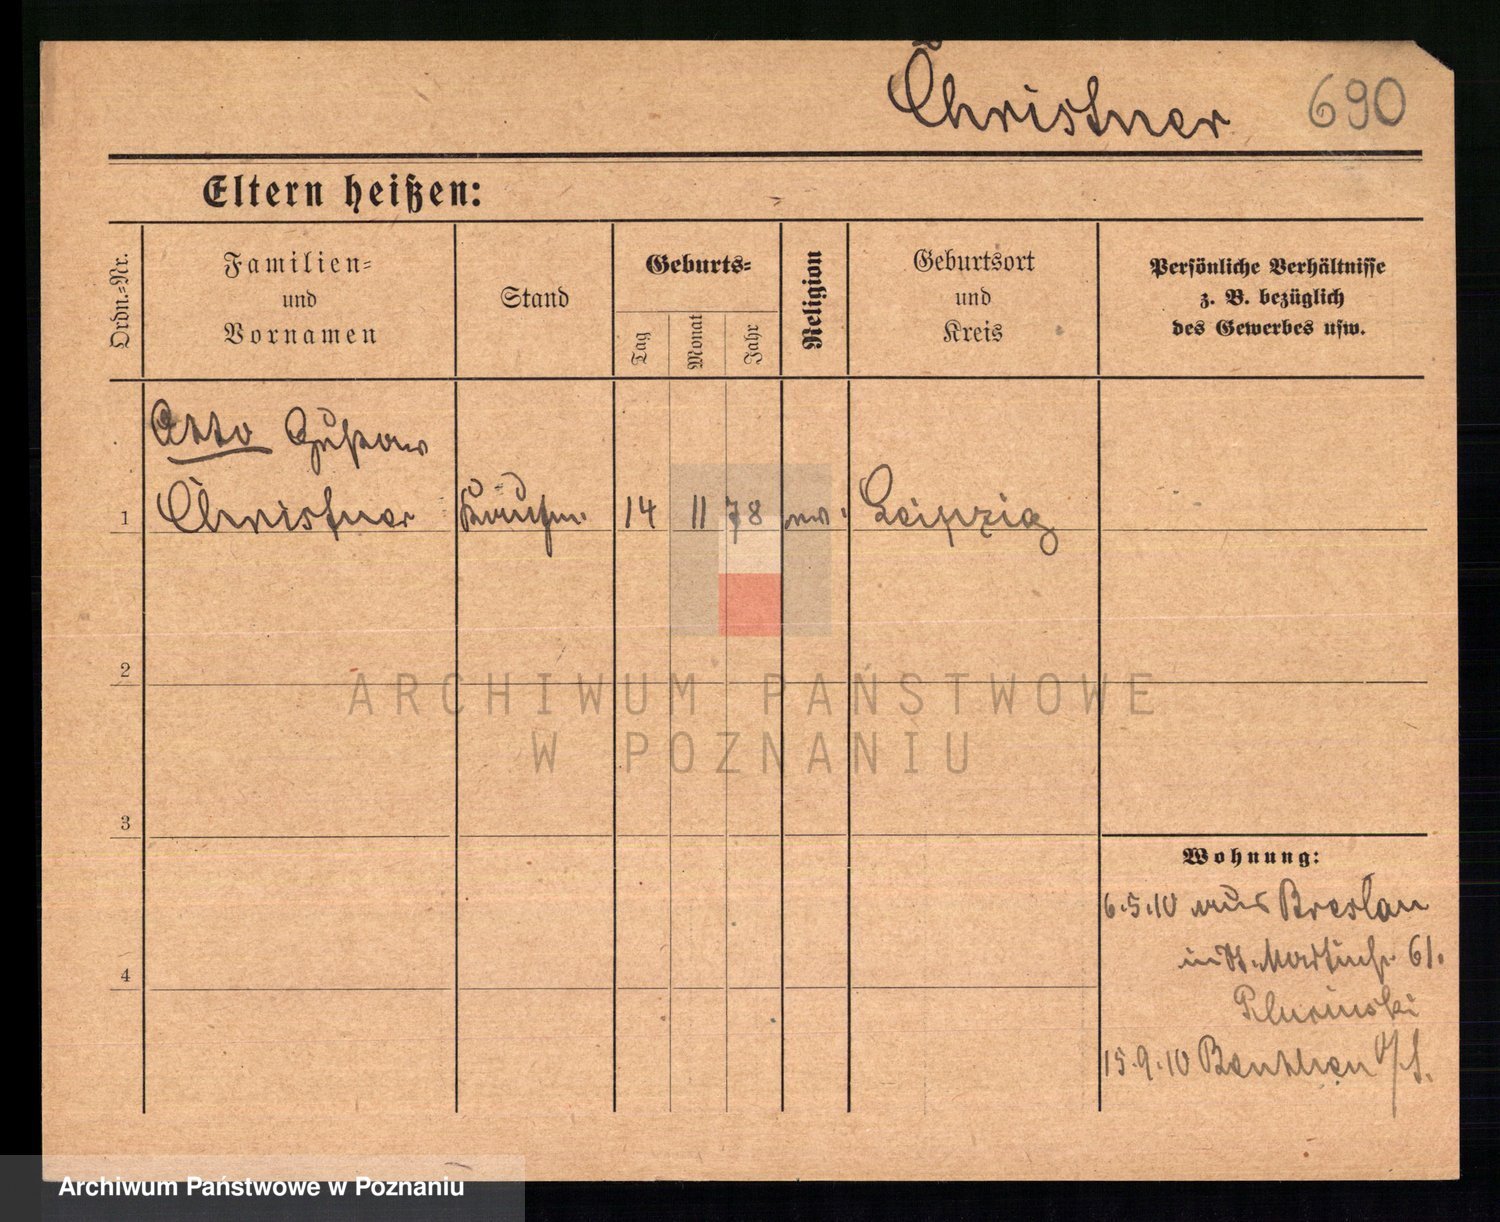 Christner 690
Eltern heißen:
Ordn.=Nr.
Familien=
und
Vornamen
Stand
Geburts=
Tag
Monat
Jahr
Religion
Geburtsort
und
Kreis
Persönliche Verhältnisse
z. B. bezüglich
des Gewerbes usw.
Otto Gustav
1 Christner Kaufm. 14 11 78 Leipzig
2
3
4
Wohnung:
6.5.10 aus Breslau
in St. Martinstr. 61.
15.9.10 Beuthen O/S.
ARCHIWUM PAŃSTWOWE
W POZNANIU
Archiwum Państwowe w Poznaniu